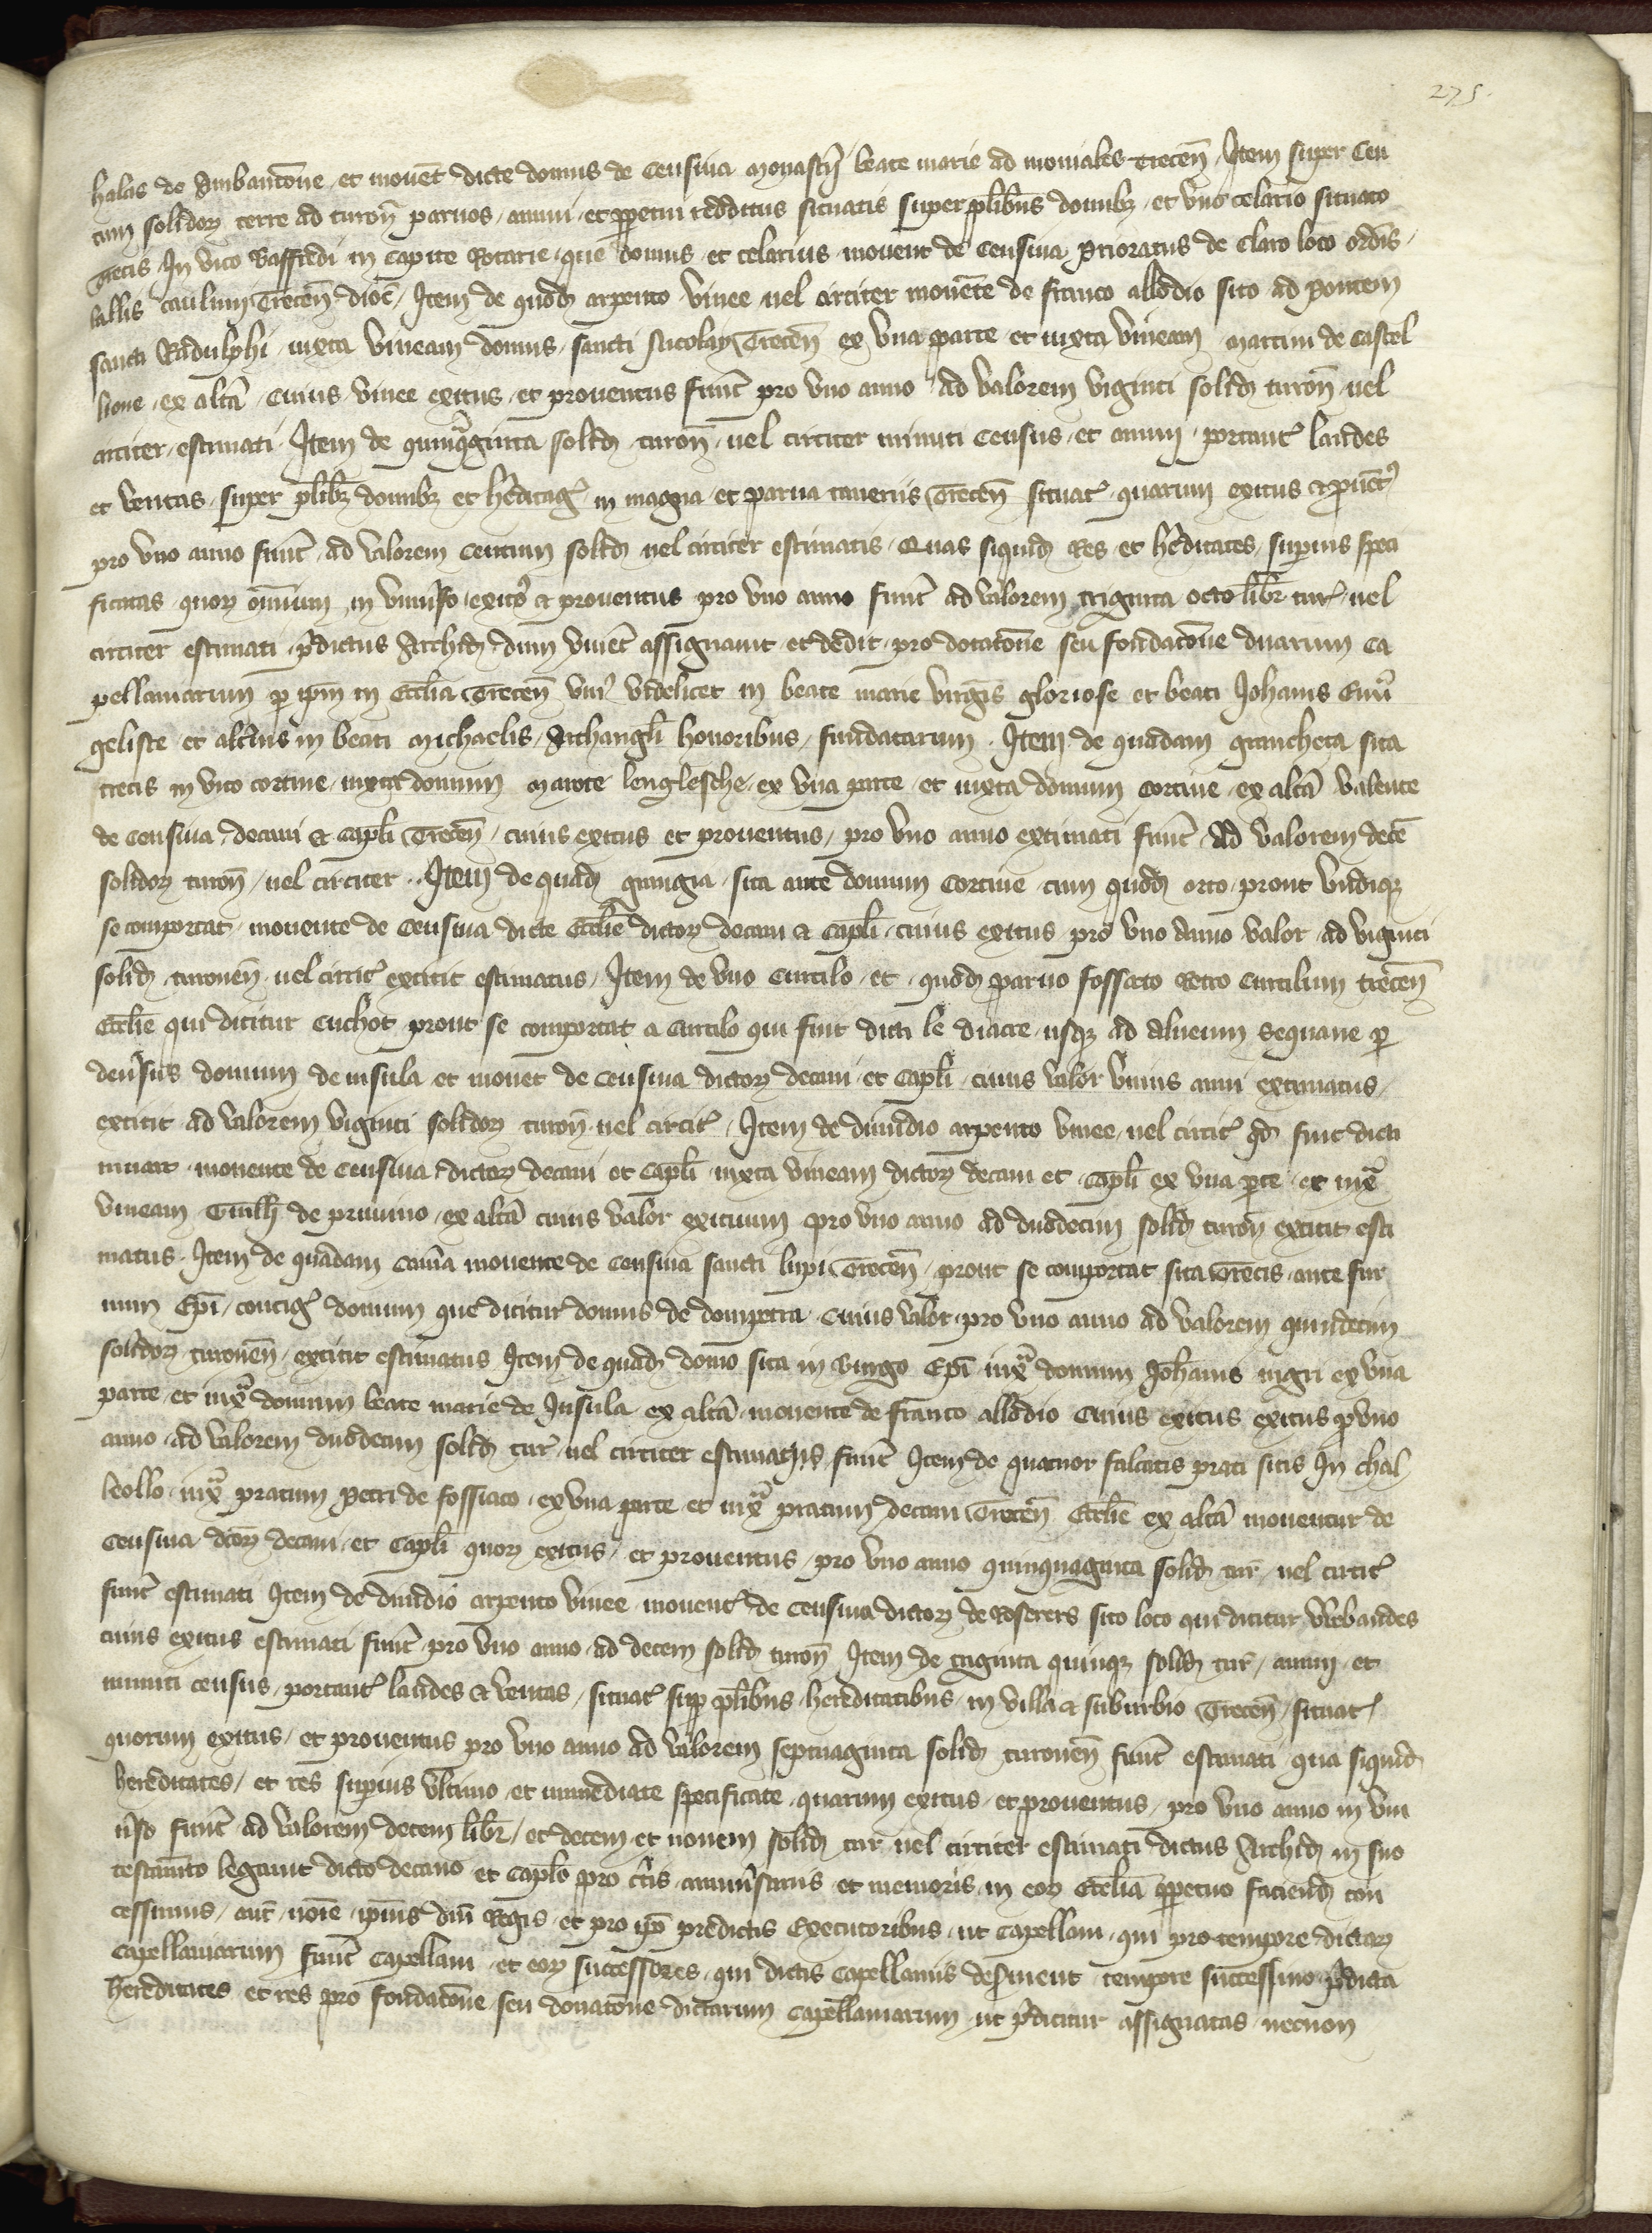 275.
halas de Ambantoñe et mouet dicte domus de Censiva Monastĩj beate marie ad moniales Trecen̄. Item super Cen
tum solidoꝝ terre ad turon̄ paruos annui et ꝑpetui redditus situatis super pl̃ibus domibꝫ et vno celario situato
Trecis In vico Baffredi in capite Rotarie que domus et celarius mouent de Censiva Prioratus de Claro loco ordĩs
uallis caulium Trecen̄ dioc̄. Item de quodꝫ arpento vinee uel circiter mouēte de franco allodio sito ad Pontem
sancti Radulphi iuxta vineam domus sancti Nicolay Trecen̄ ex vna parte et iuxta vineam Martini de Castel
lione ex altã cuius vinee exitus et prouentus fuer̃t pro vno anno ad valorem viginti solidꝫ turon̄ uel
circiter estimati Item de quinquaginta solidꝫ turon̄ uel circiter minuti Census et annui portant̃ laudes
et ventas super pl̃ibꝫ domibꝫ et hẽditag̃ in magna et parua taneriis Trecen̄ situat̃ quarum exitus et ꝓuent̃
pro vno anno fuer̃t ad valorem Centum solidꝫ uel circiter estimatis Quas siquidꝫ Res et hẽditates suꝑius speci
ficatas quoꝝ om̃ium in vniũso exitꝰ et prouentus pro vno anno fuer̃t ad valorem triginta octo libr̃ tur̃ uel
circiter estimati p̃dictus Archid̃ dum viuet̃ assignauit et dedit pro dotatoñe seu fondatoñe duarum ca
pellaniarum ꝑ ip̃m in Eccl̃ia Trecen̄ vniꝰ videlicet in beate marie virgĩs gloriose et beati Johanis Euñ
geliste et alterius in beati Michaelis Archangl̃i honoribus fundatarum. Item de quadam grancheta sita
trecis in vico cortine iuxta domum Marote lenglesche ex vna parte et iuxta domum cortine ex altã valente
de censiva decani et capl̃i Trecen̄ cuius exitus et prouentus pro vno anno extimati fuer̃t ad valorem decē
solidoꝝ turon̄ uel circiter. Item de quadꝫ grangia sita ante domum Cortine cum quodꝫ orto prout vndiqꝫ
se comportat mouente de Censiva dicte Eccl̃ie dictoꝝ decani et Capl̃i cuius exitus pro vno anno valor ad viginti
solidꝫ turonen̄ uel circit̃ extitit estimatus. Item de vno Curtilo et quodꝫ paruo fossato Retro Curtilum trecen̄
Eccl̃ie qui dicitur Cuchot prout se comportat a Curtilo qui fuit dicti le diacre usqꝫ ad alueum Sequane ꝑ
deuersus domum de insula et mouet de Censiva dictoꝝ decani et Capl̃i cuius valor vnius anni extimatus
extitit ad valorem viginti solidoꝝ turon̄ uel circit̃. Item de dimidio arpento vinee uel circit̃ qd̃ fuit dicti
muart mouente de Censiva dictoꝝ decani et Capl̃i iuxta vineam dictoꝝ decani et Capl̃i ex vna ꝑte et iux̃
vineam Guill̃i de pruuino ex altã cuius valor exituum pro vno anno ad duodecim solidꝫ turon̄ extitit esti
matus. Item de quadam cam̃a mouente de Censiva sancti lupi Trecen̄ prout se comportat sita Trecis ante fur
num Ep̃i contig̃ domum que dicitur domus de dompetra cuius valor pro vno anno ad valorem quindecim
solidoꝝ turonen̄ extitit estimatus Item de quadꝫ domo sita in Burgo Ep̃i iux̃ domum Joh̃anis nigri ex vna
parte et iux̃ domum beate marie de Insula ex altã mouente de franco allodio cuius exitus exitus ꝓ vno
anno ad valorem duodecim solidꝫ tur̃ uel circiter estimatus fuer̃t Item de quatuor falcatis prati sitis In chal
leollo iux̃ pratum Petri de fossiaco ex vna parte et iux̃ pratum decani Trecen̄ Eccl̃ie ex altã mouentur de
Censiva dc̃oꝝ decani et Capl̃i quoꝝ exitus et prouentus pro vno anno quinquaginta solidꝫ tur̃ uel circit̃
fuer̃t estimati Item de dimidio arpento vinee mouent̃ de Censiva dictoꝝ de Roserers sito loco qui dicitur vrebaudes
cuius exitus estimati fuer̃t pro vno anno ad decem solidꝫ turon̄ Item de triginta quinqꝫ solidꝫ tur̃ annui et
minuti census portant̃ laudes et ventas situat̃ suꝑ pl̃ibus hereditatibus in villa et suburbio Trecen̄ situat̃
quorum exitus et prouentus pro vno anno ad valorem septuaginta solidꝫ turonen̄ fuer̃t estimati qua siquidꝫ
hereditates et res suꝑius vltimo et immediate specificate quarum exitus et prouentus pro vno anno in vni
ũso fuer̃t ad valorem decem libr̃ et decem et nouem solidꝫ tur̃ uel circiter estimati dictus Archid̃ in suo
testam̃to legauit dicto decano et Capl̃o pro ct̃is anniũsariis et memoriis in eoꝝ Eccl̃ia ꝑpetuo faciendꝫ con
cessimus aut̃ noĩe ipĩus dñi Regis et pro ip̃o predictis Executoribus ut Capellani qui pro tempore dictaꝝ
Capellaniarum fuer̃t Capellani et eoꝝ successores qui dictis Capellaniis deseruient tempore successiuo p̃dicta
hereditates et res pro fondatoñe seu donatoñe dictarum Capellaniarum ut p̃dicitur assignatas necnon